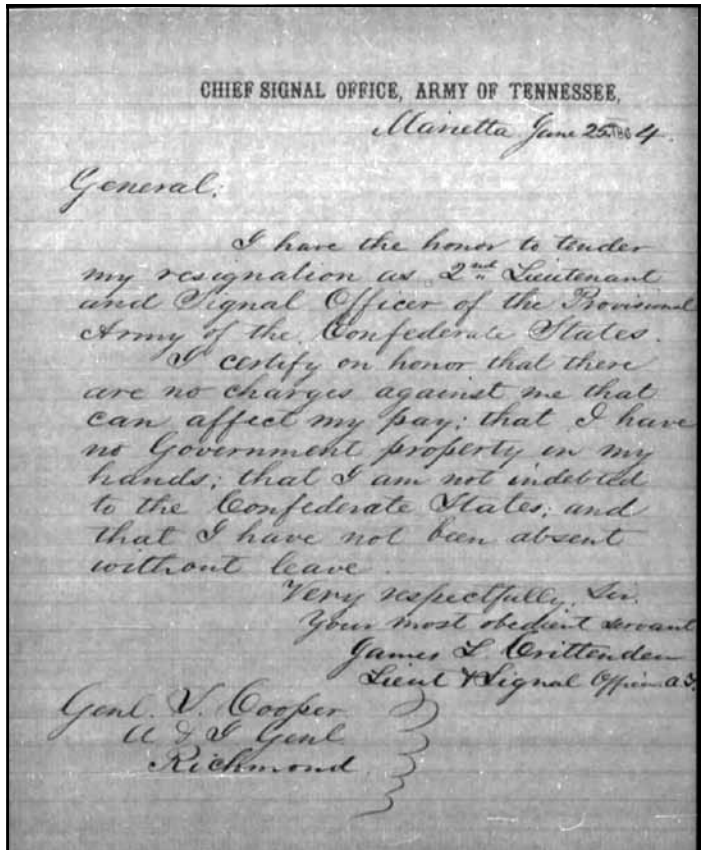 CHIEF SIGNAL OFFICE, ARMY OF TENNESSEE,
Marietta June 25 1864.
General:
I have the honor to tender
my resignation as 2nd Lieutenant
and Signal Officer of the Provisional
Army of the Confederate States.
I certify on honor that there
are no charges against me that
can affect my pay; that I have
no Government property in my
hands; that I am not indebted
to the Confederate States; and
that I have not been absent
without leave.
Very respectfully, Sir.
Your most obedient servant
James L Crittenden
Lieut & Signal Officer A.T.
Genl. S. Cooper
A & I Genl
Richmond